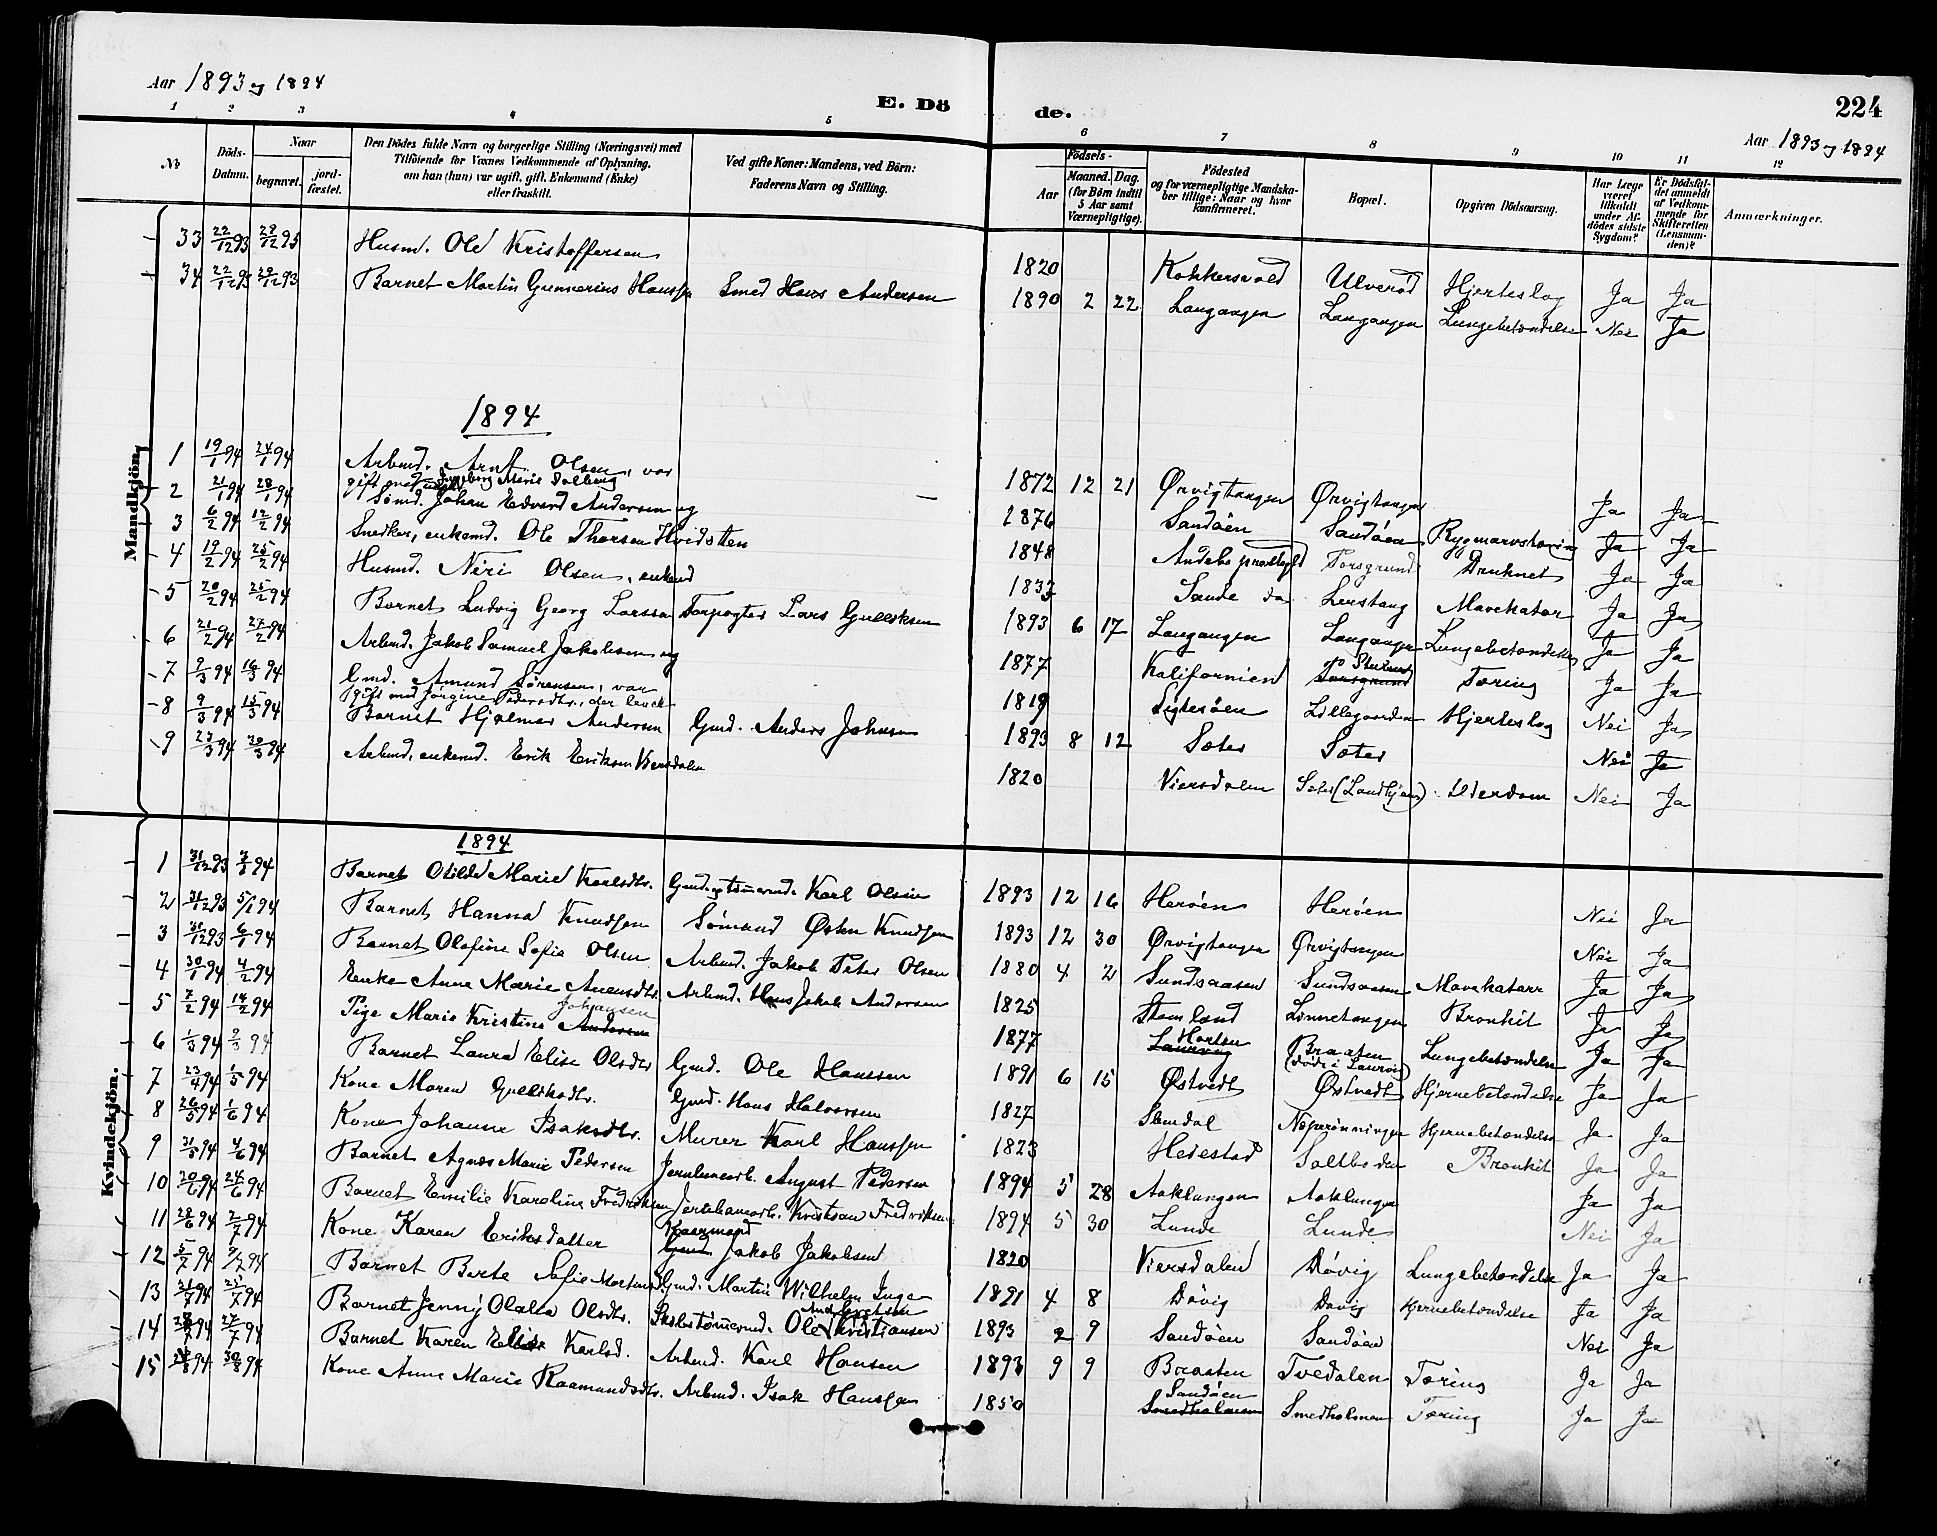 Aar 1893 og 1894
E. Dö
de.
224
Aar 1893 og 1894
1 2 3 4 5 6 7 8 9 10 11 12
No
Döds-Datum.
Naar begravet. jord-fæstet.
Den Dödes fulde Navn og borgerlige Stilling (Næringsvei) med Tilföiende for Voxnes Vedkommende af Oplysning, om han (hun) var ugift, gift, Enkemand (Enke) eller fraskilt.
Ved gifte Koner: Mandens, ved Börn: Faderens Navn og Stilling.
Födsels-
Aar Maaned. Dag. (for Börn indtil 5 Aar samt Værnepligtige).
Födested og for værnepligtige Mandskaber tillige: Naar og hvor konfirmeret.
Bopæl.
Opgiven Dödsaarsag.
Har Læge været tilkaldt under Afdödes sidste Sygdom?
Er Dödsfaldet anmeldt af Vedkommende for Skifteretten (Lensmanden)?
Anmærkninger.
Mandkjön.
33 22/12 93 28/12 93 Husm. Ole Kristoffersen 1820 Kokkersvold Ulverød Hjerteslag Ja Ja
34 22/12 93 29/12 93 Barnet Martin Gunnerius Hanssen Smed Hans Andersen 1890 2 22 Langangen Langangen Lungebetændelse Nei Ja
1894
1 19/1 94 24/1 94 Arbmd. Arnt Olsen, var gift med Ingeborg Marie Solberg 1872 12 21 Ørvigtangen Ørvigtangen Ja Ja
2 21/1 94 28/1 94 Sømd. Johan Edvard Andersen ug 1876 Sandöen Sandöen Rygmarvstæring Ja Ja
3 6/2 94 12/2 94 Snedker, enkemd. Ole Thorsen Hvidsten 1848 Andebo præstegjeld Porsgrund Druknet Ja Ja
4 19/2 94 25/2 94 Husmd. Niri Olsen, enkemd 1833 Sande Lerstang Mavekatar Ja Ja
5 20/2 94 25/2 94 Barnet Ludvig Georg Larssen Forpagter Lars Gulliksen 1893 6 17 Langangen Langangen Lungebetændelse Ja Ja
6 21/2 94 27/2 94 Arbmd. Jakob Samuel Jakobsen ug 1877 Kalifornien Porsgrund Tæring Ja Ja
7 9/3 94 16/3 94 Gmd. Amund Sörensen, var gift med Jörgine Pedersdtr., der lever 1819 Sigtesöen Lillegaarden Hjerteslag Nei Ja
8 9/3 94 15/3 94 Barnet Hjalmar Andersen Gmd. Anders Johnsen 1893 8 12 Sæter Sæter Nei Ja
9 23/3 94 30/3 94 Arbmd, enkemd. Erik Eriksen Viersdalen 1820 Viersdalen Sæter (Landhjem) Alderdom Nei Ja
Kvindekjön.
1894
1 31/12 93 94 Barnet Otilde Marie Karlsdtr. Gmd. og tömmermd. Karl Olsen 1893 12 16 Heröen Heröen Nei Ja
2 31/12 93 5/1 94 Barnet Hanna Knudsen Sömand Østen Knudsen 1893 12 30 Ørvigtangen Ørvigtangen Nei Ja
3 31/12 93 6/1 94 Barnet Olefine Sofie Olsen Arbmd. Jakob Peter Olsen 1880 4 2 Sundsaasen Sundsaasen Mavekatarr Ja Ja
4 30/1 94 4/2 94 Enke Anne Marie Arbmd. Hans Jakob Andersen 1825 Stamland Lönnetangen Bronkit Ja Ja
5 7/2 94 14/2 94 Pige Marie Kristine Andersen Johansen 1877 Laurvig Horten Braaten (döde i Laurvig) Lungebetændelse Ja Ja
6 1/3 94 9/3 94 Barnet Laura Elise Olsdtr Gmd. Ole Hanssen 1891 6 15 Østvedt Østvedt Hjernebetændelse Ja Ja
7 23/4 94 1/5 94 Kone Maren Gulliksdtr. Gmd. Hans Halvorsen 1827 Stendal Næperönningen Hjernebetændelse Ja Ja
8 26/5 94 1/6 94 Kone Johanne Isaksdtr. Murer Karl Hanssen 1823 Heiestad Saltboden Bronkit Ja Ja
9 31/5 94 4/6 94 Barnet Agnes Marie Pedersen Jernbanearb. August Pedersen 1894 5 28 Aaklungen Aaklungen Ja Ja
10 20/6 94 24/6 94 Barnet Emilie Karoline Fredriksen Jernbanearb. Kristian Fredriksen 1894 5 30 Lunde Lunde Nei Ja
11 28/6 94 2/7 94 Kone Karen Eriksdatter Gmd Kaarmand Jakob Jakobsen 1820 Viersdalen Dövig Lungebetændelse Ja Ja
12 5/7 94 9/7 94 Barnet Berte Sofie Gmd. Martin Wilhelm Inge 1891 4 8 Dövig Dövig Hjernebetændelse Ja Ja
13 21/7 94 25/7 94 Barnet Jenny Olalia Olsdtr. Skibstömrmd. Ole Kristiansen 1893 2 9 Sandöen Sandöen Nei Ja
14 94 27/7 94 Barnet Karen Elise Karlsd. Arbmd. Karl Hansen 1893 9 9 Braaten Tvedalen Tæring Ja Ja
15 94 30/8 94 Kone Anne Marie Raamundsdtr. Arbmd. Isak Hanssen 1850 Smedholmen Sandöen Smedholmen Tæring Ja Ja